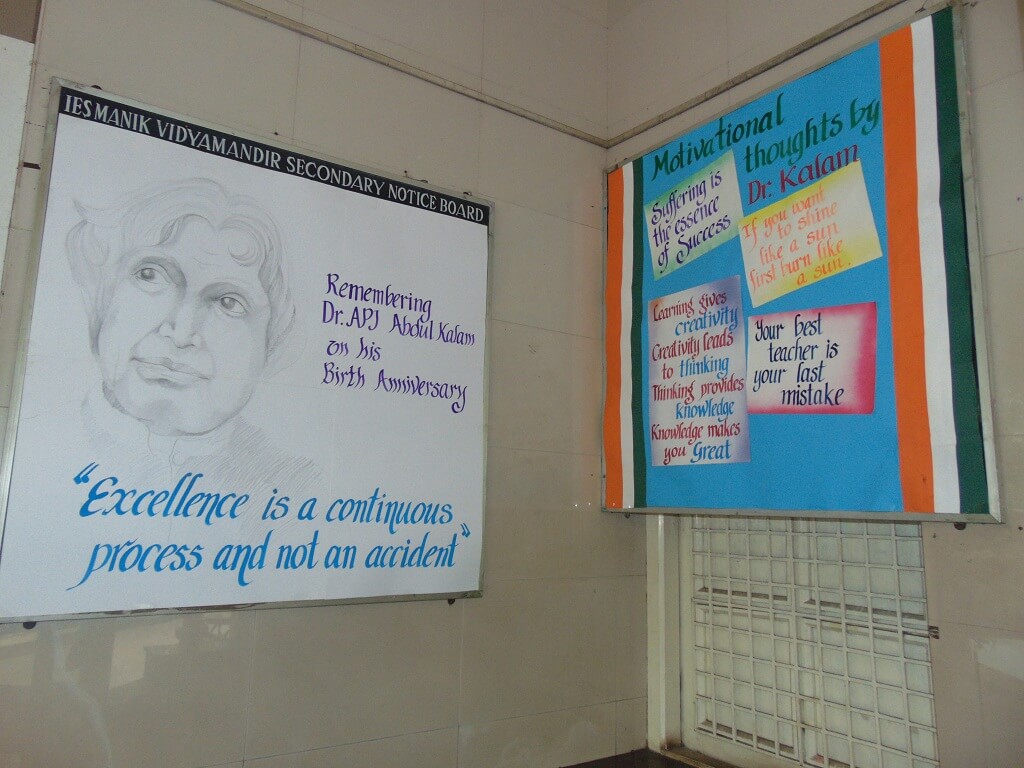 IES MANIK VIDYAMANDIR SECONDARY NOTICE BOARD
Remembering
Dr. APJ Abdul Kalam
on his
Birth Anniversary
“Excellence is a continuous
process and not an accident”
Motivational
thoughts by
Dr. Kalam
Suffering is
the essence
of Success
If you want
to shine
like a sun
first burn like
a sun.
Learning gives
creativity
Creativity leads
to thinking
Thinking provides
knowledge
Knowledge makes
you Great
Your best
teacher is
your last
mistake